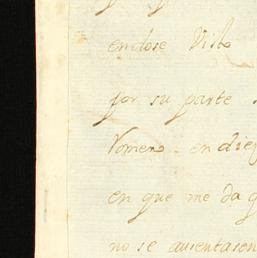 endose Visto
por su parte
Romero en diez
en que me da q
no se auientasen